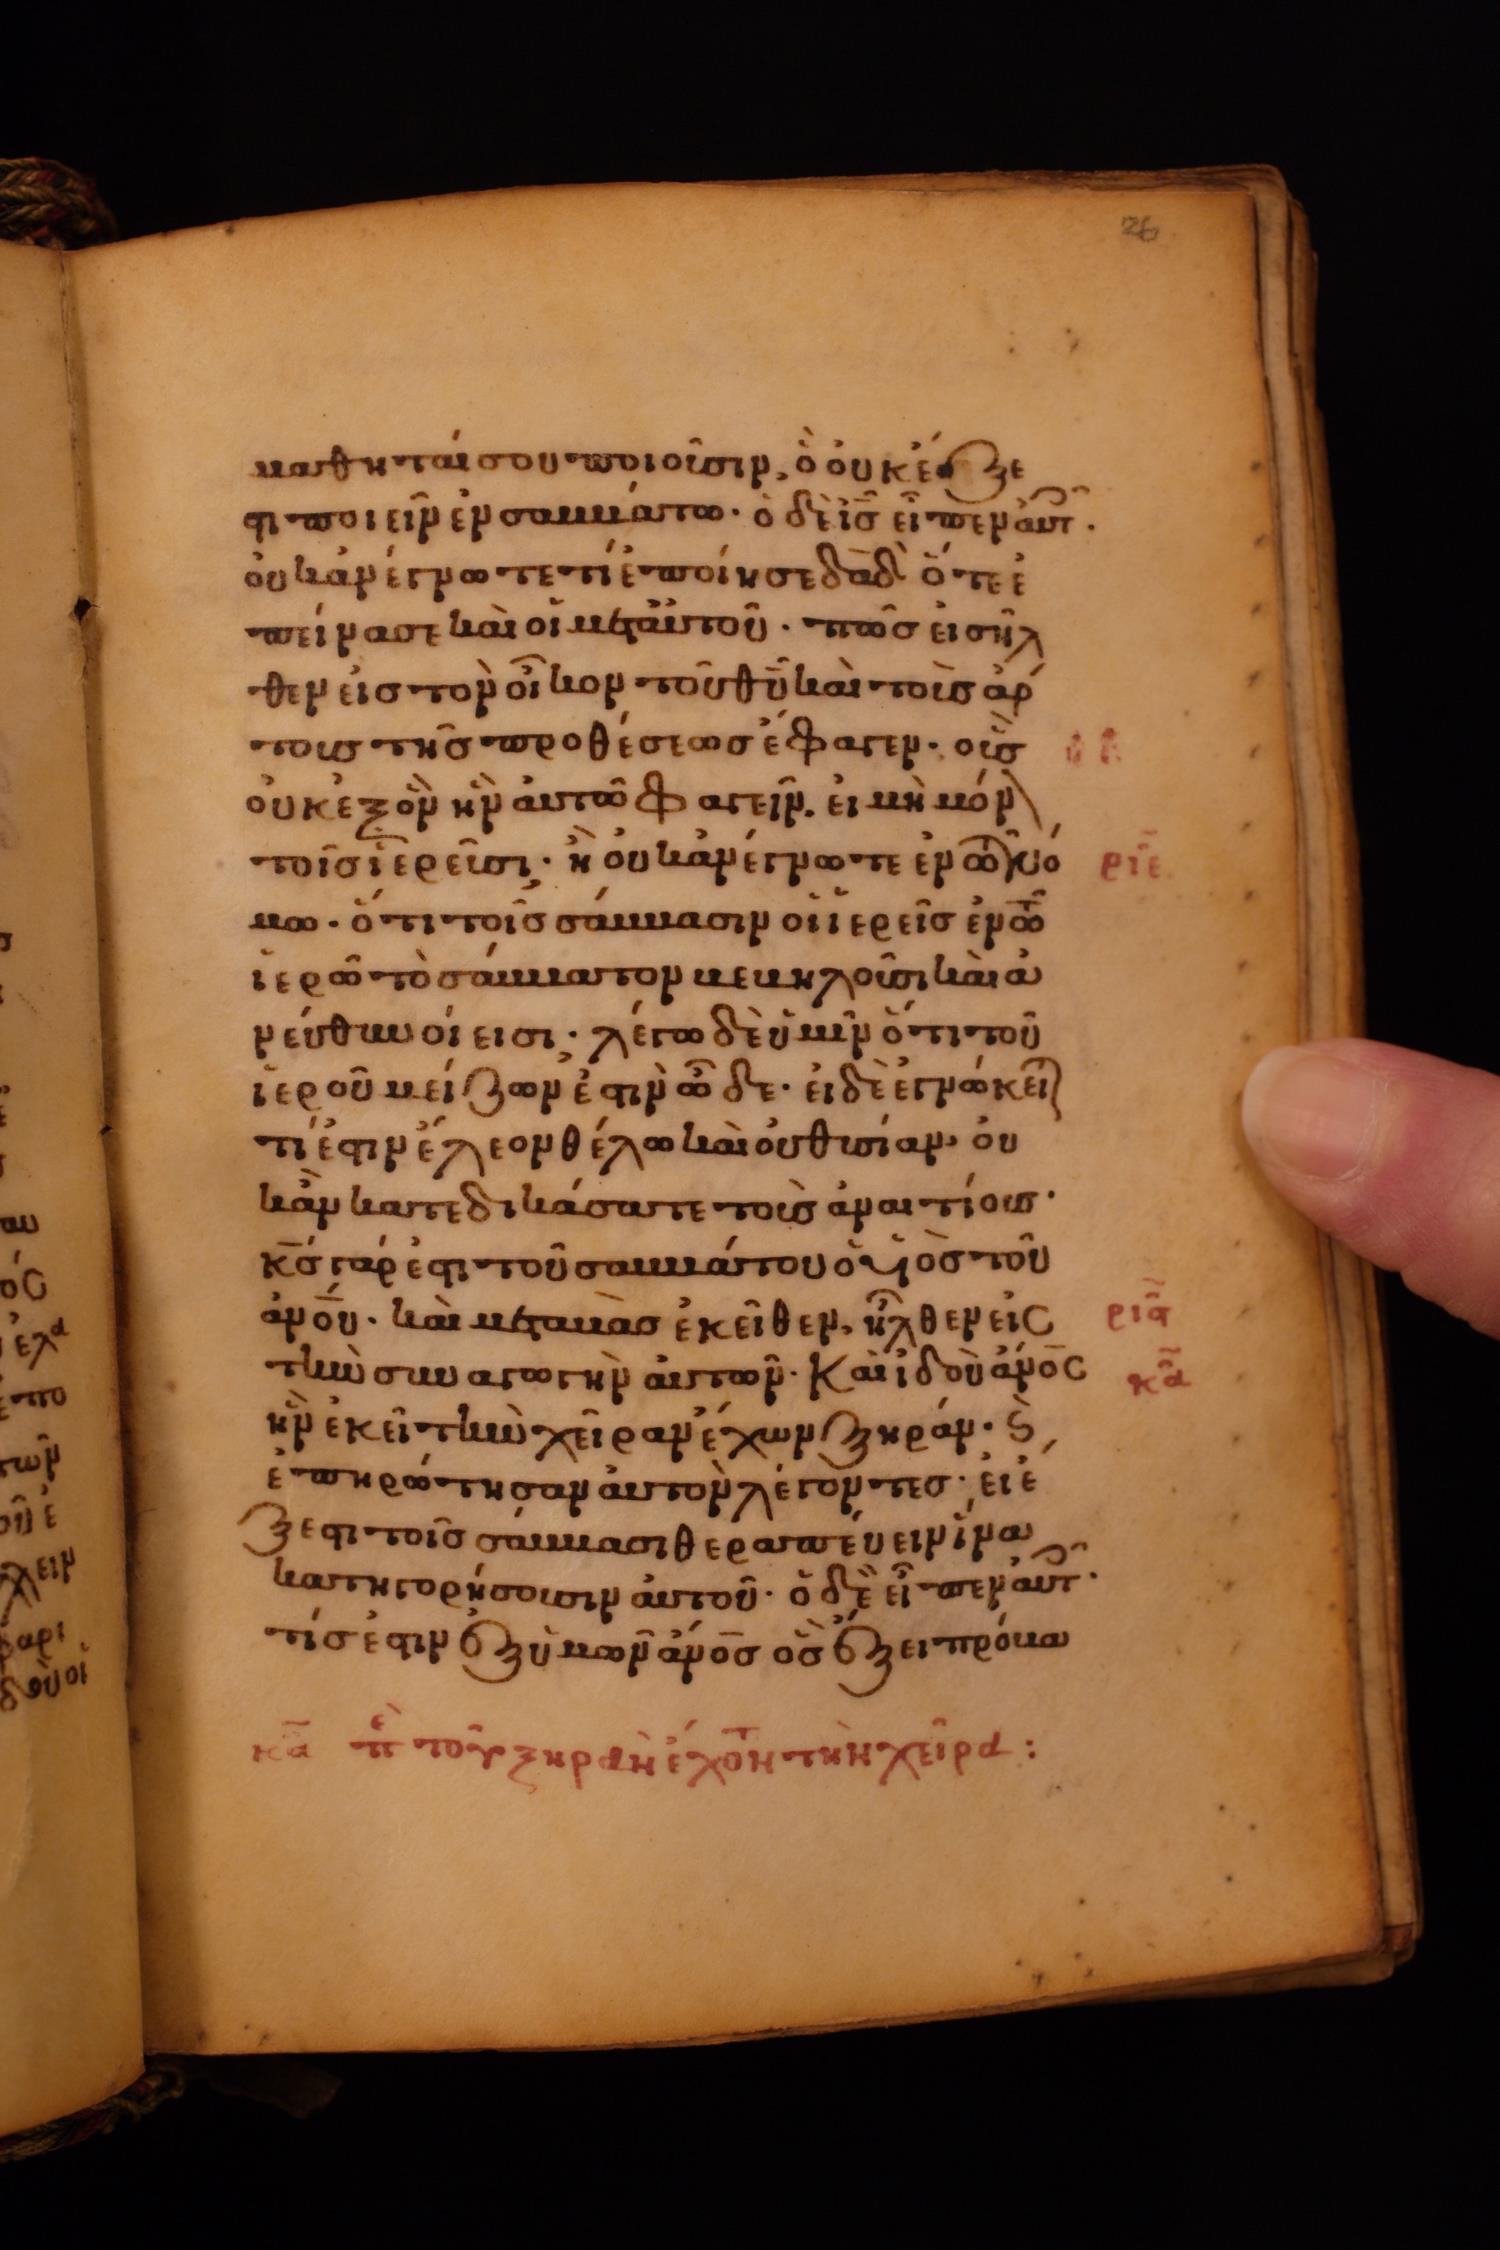 26
μαθηταί σου ποιοῦσιν, ὃ οὐκ ἔξε
στι ποιεῖν ἐν σαββάτω. ὁ δὲ ἰς εἶπεν αὐτ.
οὐκ ἀνέγνωτε τί ἐποίησε δαδ ὅτε ἐ
πείνασε καὶ οἱ μετ αὐτοῦ. πῶς εἰσῆλ
θεν εἰς τὸν οἶκον τοῦ θυ καὶ τοὺς ἄρ
τους τῆς προθέσεως ἔφαγεν. οὓς
οὐκ ἐξὸν ἦν αὐτῶ φαγεῖν. εἰ μὴ μόν
τοῖς ἱερεῦσι. ἢ οὐκ ἀνέγνωτε ἐν τῶ νό
ριε
μω. ὅτι τοῖς σάββασιν οἱ ἱερεῖς ἐν τῶ
ἱερῶ τὸ σάββατον βεβηλοῦσι καὶ ἀ
ναίτιοί εἰσι. λέγω δὲ ὑμῖν ὅτι τοῦ
ἱεροῦ μείζων ἐστὶν ὧδε. εἰ δὲ ἐγνώκει
τί ἐστιν ἔλεον θέλω καὶ οὐ θυσίαν, οὐ
κ ἂν κατεδικάσατε τοὺς ἀναιτίους.
κς γάρ ἐστι τοῦ σαββάτου ὁ υἱὸς τοῦ
ἀνου. καὶ μεταβὰς ἐκεῖθεν, ἦλθεν εἰς
ρια
τὴν συναγωγὴν αὐτῶν. Καὶ ἰδοὺ ἀνος
κα
ἦν ἐκεῖ τὴν χεῖραν ἔχων ξηράν. ϗ
ἐπηρώτησαν αὐτὸν λέγοντες. εἰ ἔ
ξεστι τοῖς σάββασι θεραπεύειν ἵνα
κατηγορήσουσιν αὐτοῦ. ὁ δὲ εἶπεν αὐτ.
τίς ἐστιν ἐξ ὑμῶν ἀνος ὃς ἕξει πρόβα
κα πε τοῦ ξηρὰν ἔχοντ τὴν χεῖρα :